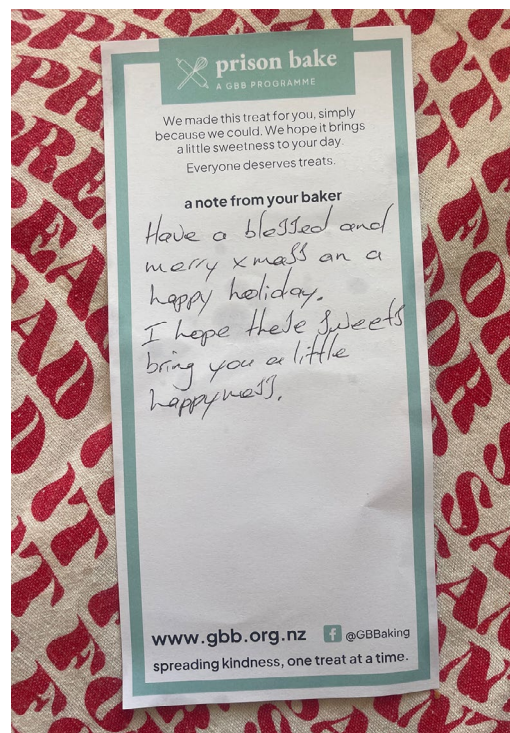 prison bake
A GBB PROGRAMME
We made this treat for you, simply
because we could. We hope it brings
a little sweetness to your day.
Everyone deserves treats.
a note from your baker
Have a blessed and
merry xmass an a
happy holiday.
I hope these sweets
bring you a little
happyness.
www.gbb.org.nz @GBBaking
spreading kindness, one treat at a time.